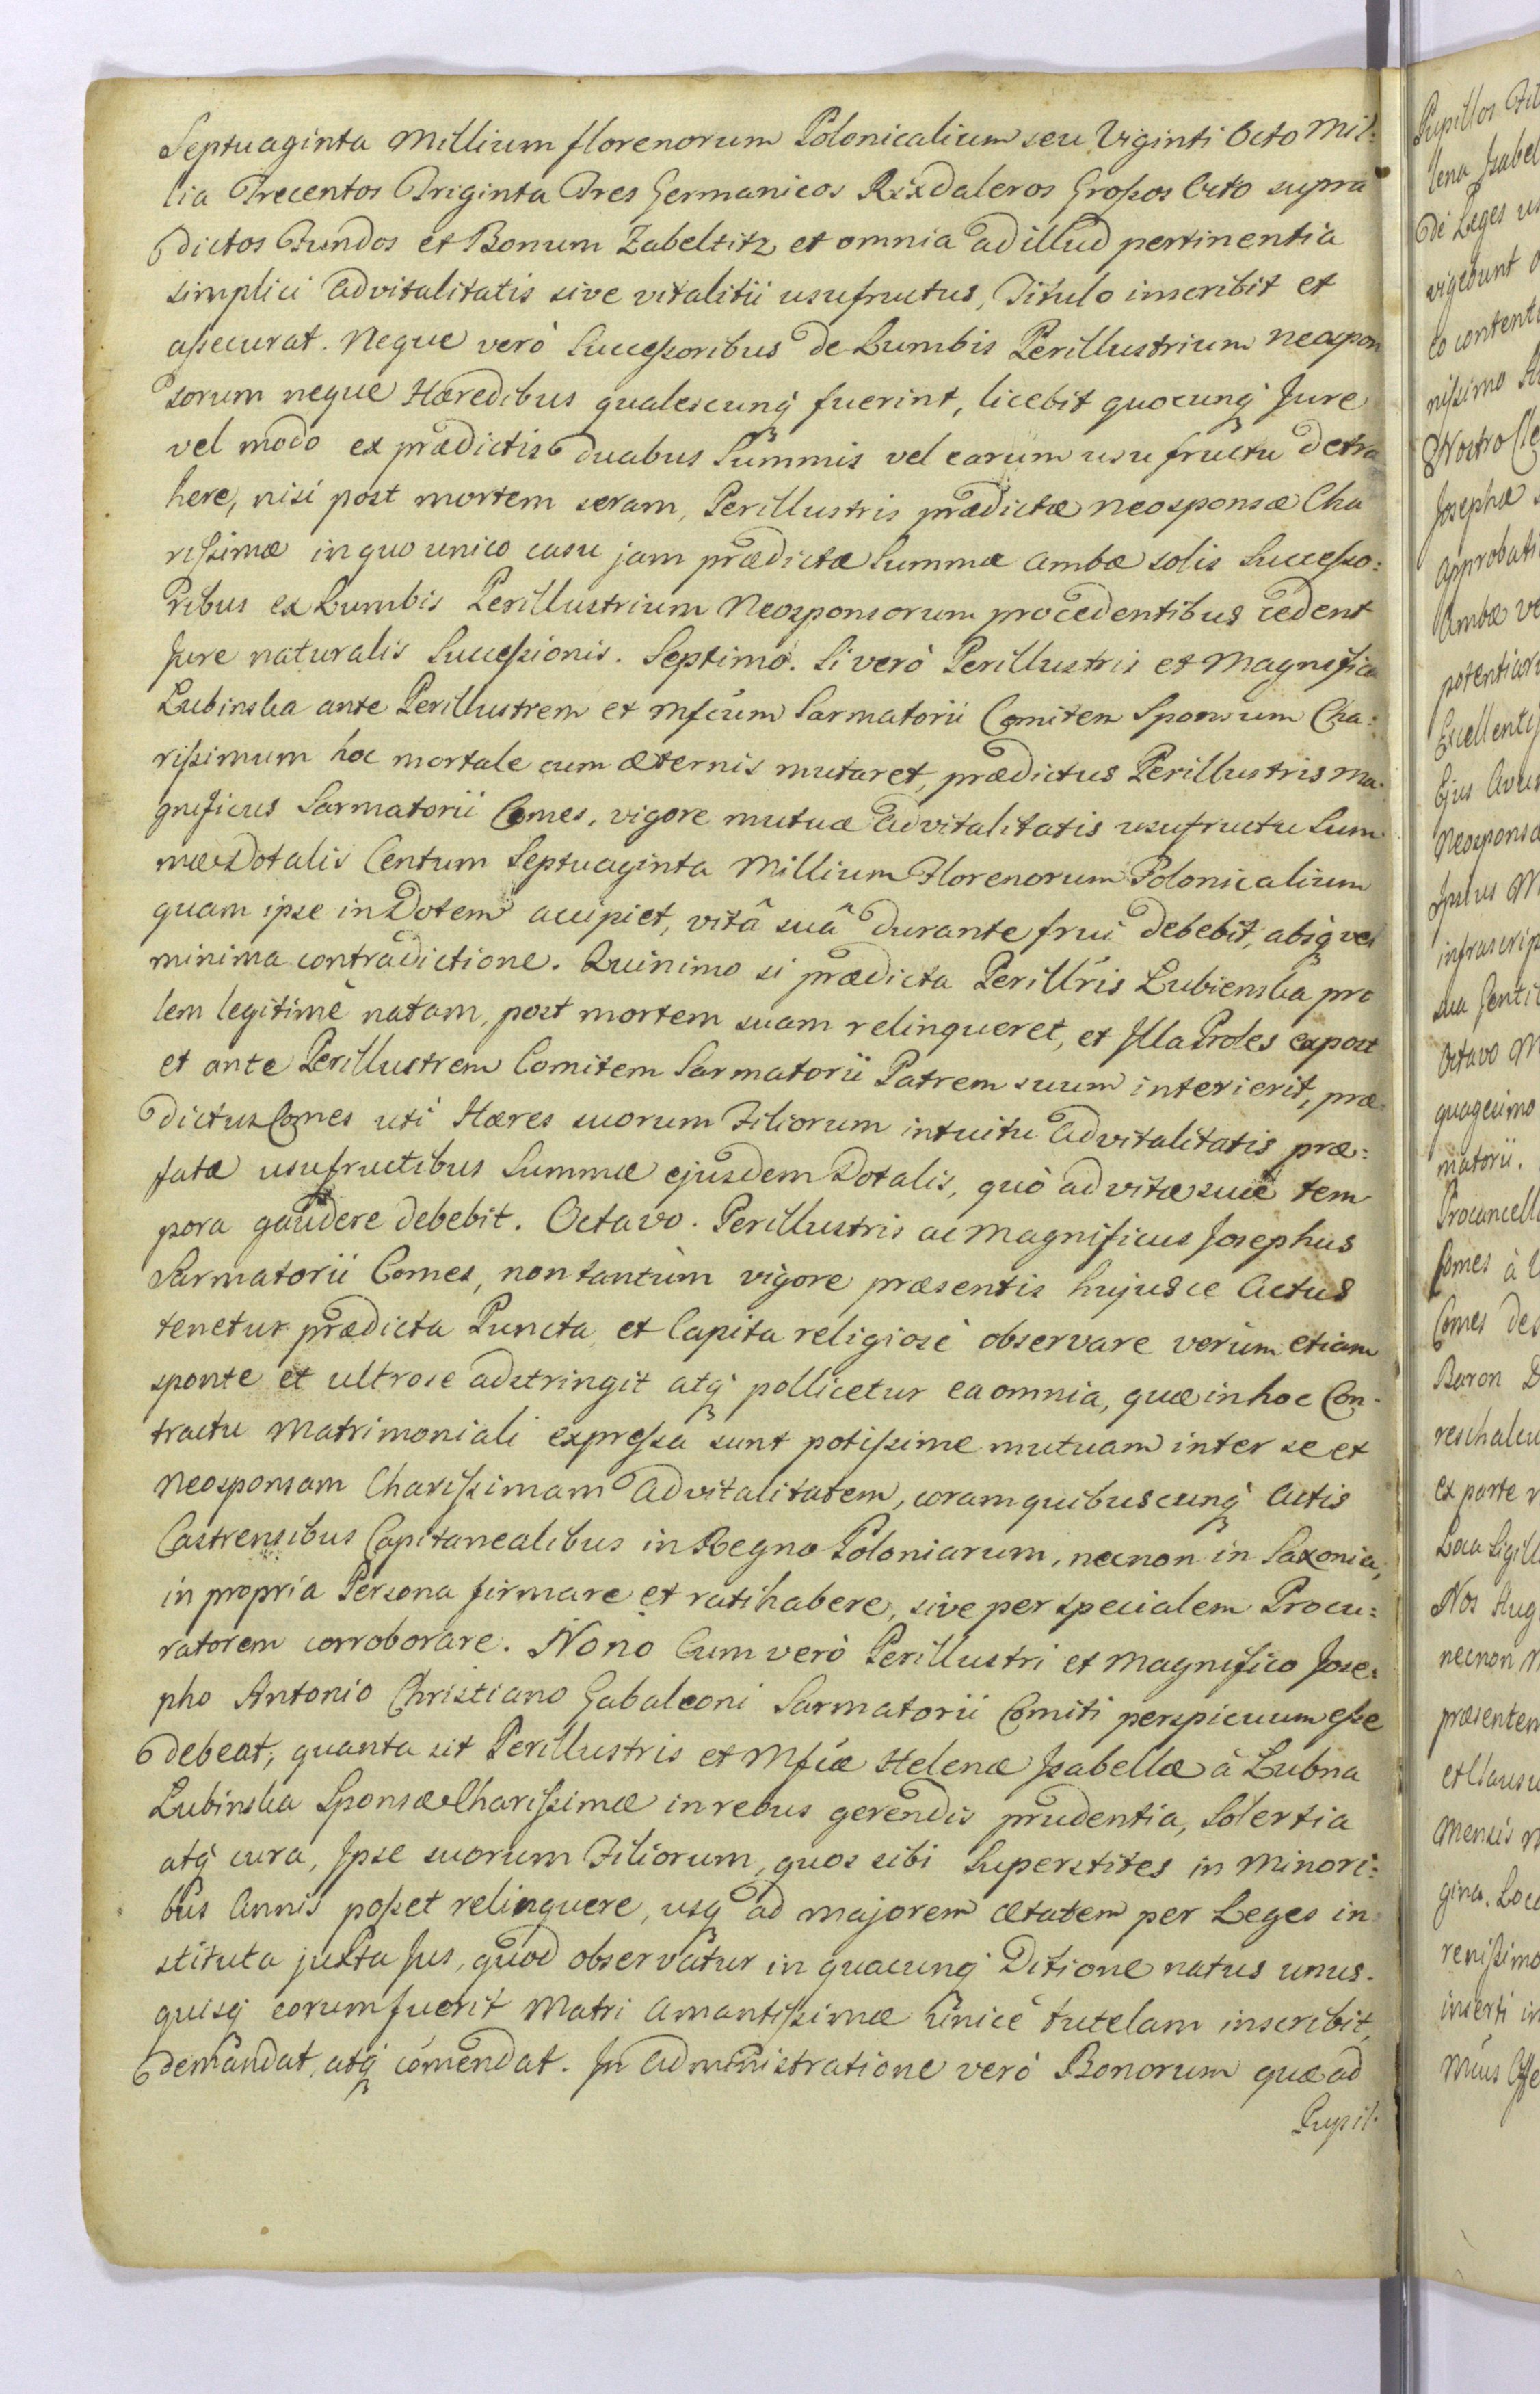 Septuaginta Millium florenorum Polonicalium seu Viginti Octo Mil:
lia Trecentos Triginta Tres Germanicos Rixdaleros Großos Octo supra
dictos Fundos et Bonum Zabeltitz et omnia ad illud pertinentia
simplici advitalitatis sive vitalitii usufructus, Titulo inscribit et
aßecurat. Neque verò Succeßoribus de Lumbis Perillustrium neospon
sorum neque Hæredibus qualescunq fuerint, licebit quocunq Jure
vel modo ex prædictis duabus Summis vel earum usufructu detra
here, nisi post mortem seram, Perillustris prædictæ neosponsæ Cha
rißimæ in quo unico casu jam prædictæ Summæ ambæ solis Succeßo:
ribus ex Lumbis Perillustrium Neosponsorum procedentibus cedent
Jure naturalis Succeßionis. Septimò. Si verò Perillustris et Magnifica
Lubinska ante Perillustrem et Mfcum Sarmatorii Comitem Sponsum Cha:
rißimum hoc mortale cum æternis mutaret, prædictus Perillustris Ma:
gnificus Sarmatorii Comes, vigore mutuæ advitalitatis usufructu Sum
mæ Dotalis Centum Septuaginta Millium Florenorum Polonicalium
quam ipse in Dotem accipiet, vitâ suâ durante frui debebit, absq vel
minima contradictione. Quinimo si prædicta Perillris Lubienska pro
lem legitimè natam, post mortem suam relinqueret, et Illa Proles expost
et ante Perillustrem Comitem Sarmatorii Patrem suum interierit, præ
dictus Comes uti Hæres suorum Filiorum intuitu advitalitatis præ:
fatæ usufructibus Summæ ejusdem Dotalis, quò ad vitæ suæ tem
pora gaudere debebit. Octavo. Perillustris ac Magnificus Josephus
Sarmatorii Comes, non tantùm vigore præsentis hujusce Actus
tenetur prædicta Puncta et Capita religiosè observare verùm etiam
sponte et ultrose adstringit atq pollicetur ea omnia, quæ in hoc Con-
tractu Matrimoniali expreßa sunt potißime mutuam inter se et
Neosponsam Charißimam advitalitatem, coram quibuscunq Actis
Castrensibus Capitanealibus in Regno Poloniarum, necnon in Saxonia,
in propria Persona firmare et ratihabere, sive per specialem Procu:
ratorem corroborare. Nonò Cum verò Perillustri et Magnifico Jose:
pho Antonio Christiano Gabaleoni Sarmatorii Comiti perspicuum eße
debeat, quanta sit Perillustris et Mfcæ Helenæ Isabellæ à Lubna
Lubinska Sponsæ Charißimæ in rebus gerendis prudentia, Solertia
atq cura, Ipse suorum Filiorum, quos sibi Superstites in Minori:
bus Annis poßet relinquere, usq ad majorem ætatem per Leges in
stituta juxta Jus, quod observatur in quacunq Ditione natus unus-
quisq eorum fuerit Matri Amantißimæ unicè tutelam inscribit,
demandat, atq comendat. In administratione verò Bonorum quæ ad
Pupil-
Pupillos Fil
lena Isabel
di Leges us
vigebunt
eo contenti
nißimo Au
Nostro Cle
Josephæ
approbati
Ambæ ve
potentioru
Excellentiß
Ejus Avus
Neosponsa
Ipsius M
infrascrip
sua Genti
Octavo M
quagesimo
matorii.
Procancella
Comes à
Comes de
Baron D
reschalcu
ex parte
Loca Sigill
Nos Aug
necnon
præsentem
et Clausu
Mensis
gina. Loco
renißimo
inserti in